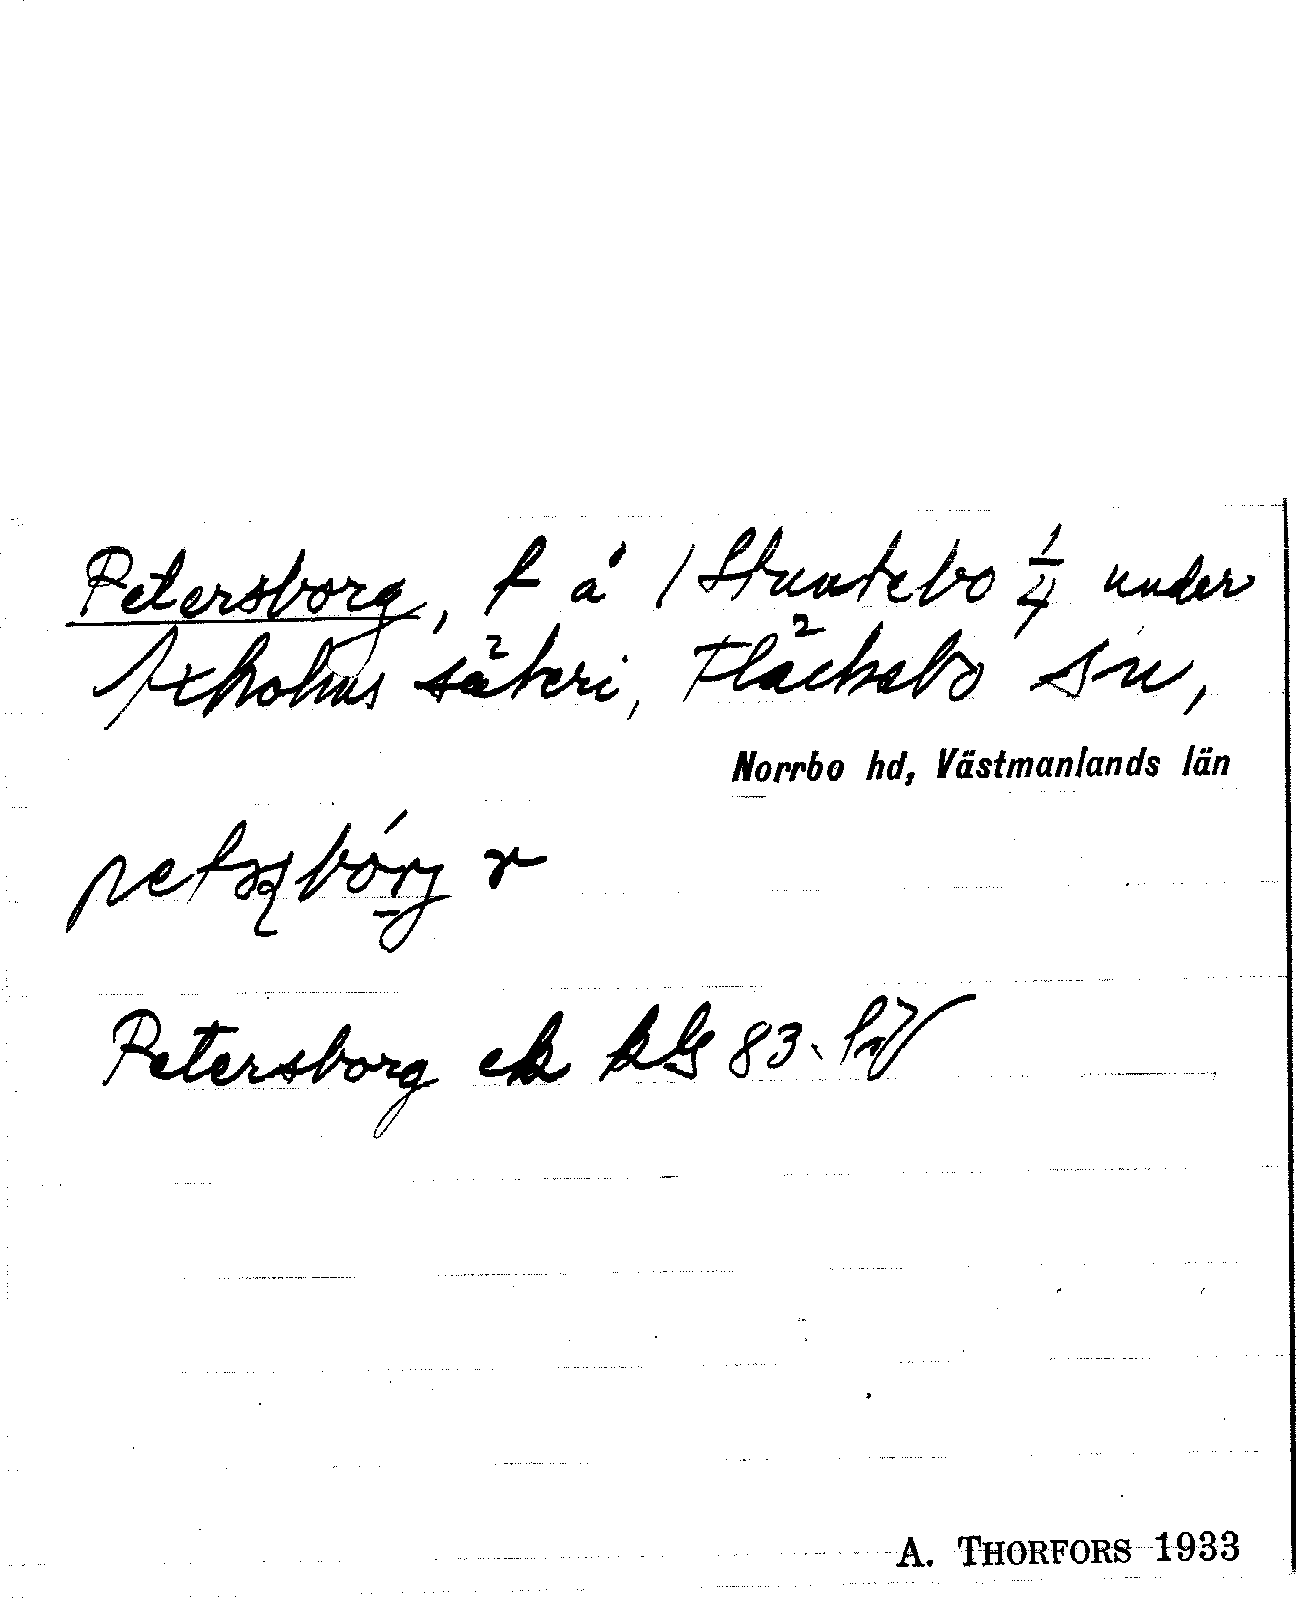 Petersborg, t å 1 Stuntebo 1/4 under
Axholms säteri, Fläckebo sn,
Norrbo hd, Västmanlands län
Petersborg ek
83.
A. THORFORS 1933